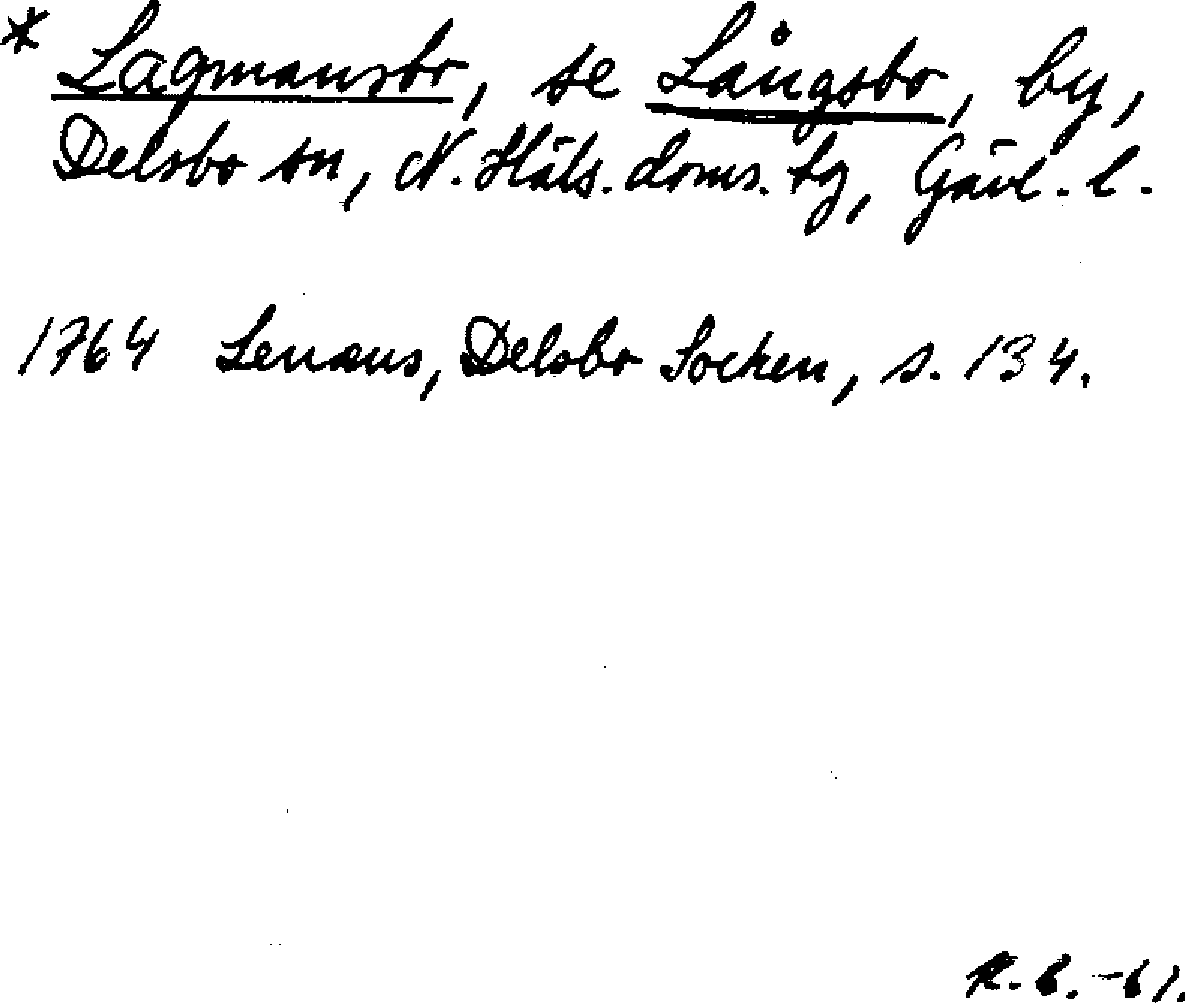 * Lagmansbo, se Långsbo, by,
Delsbo sn, N. Häls. doms. tg, Gävl. l.
1764 Lenæus, Delsbo Socken, s. 134.
R.B. -61.